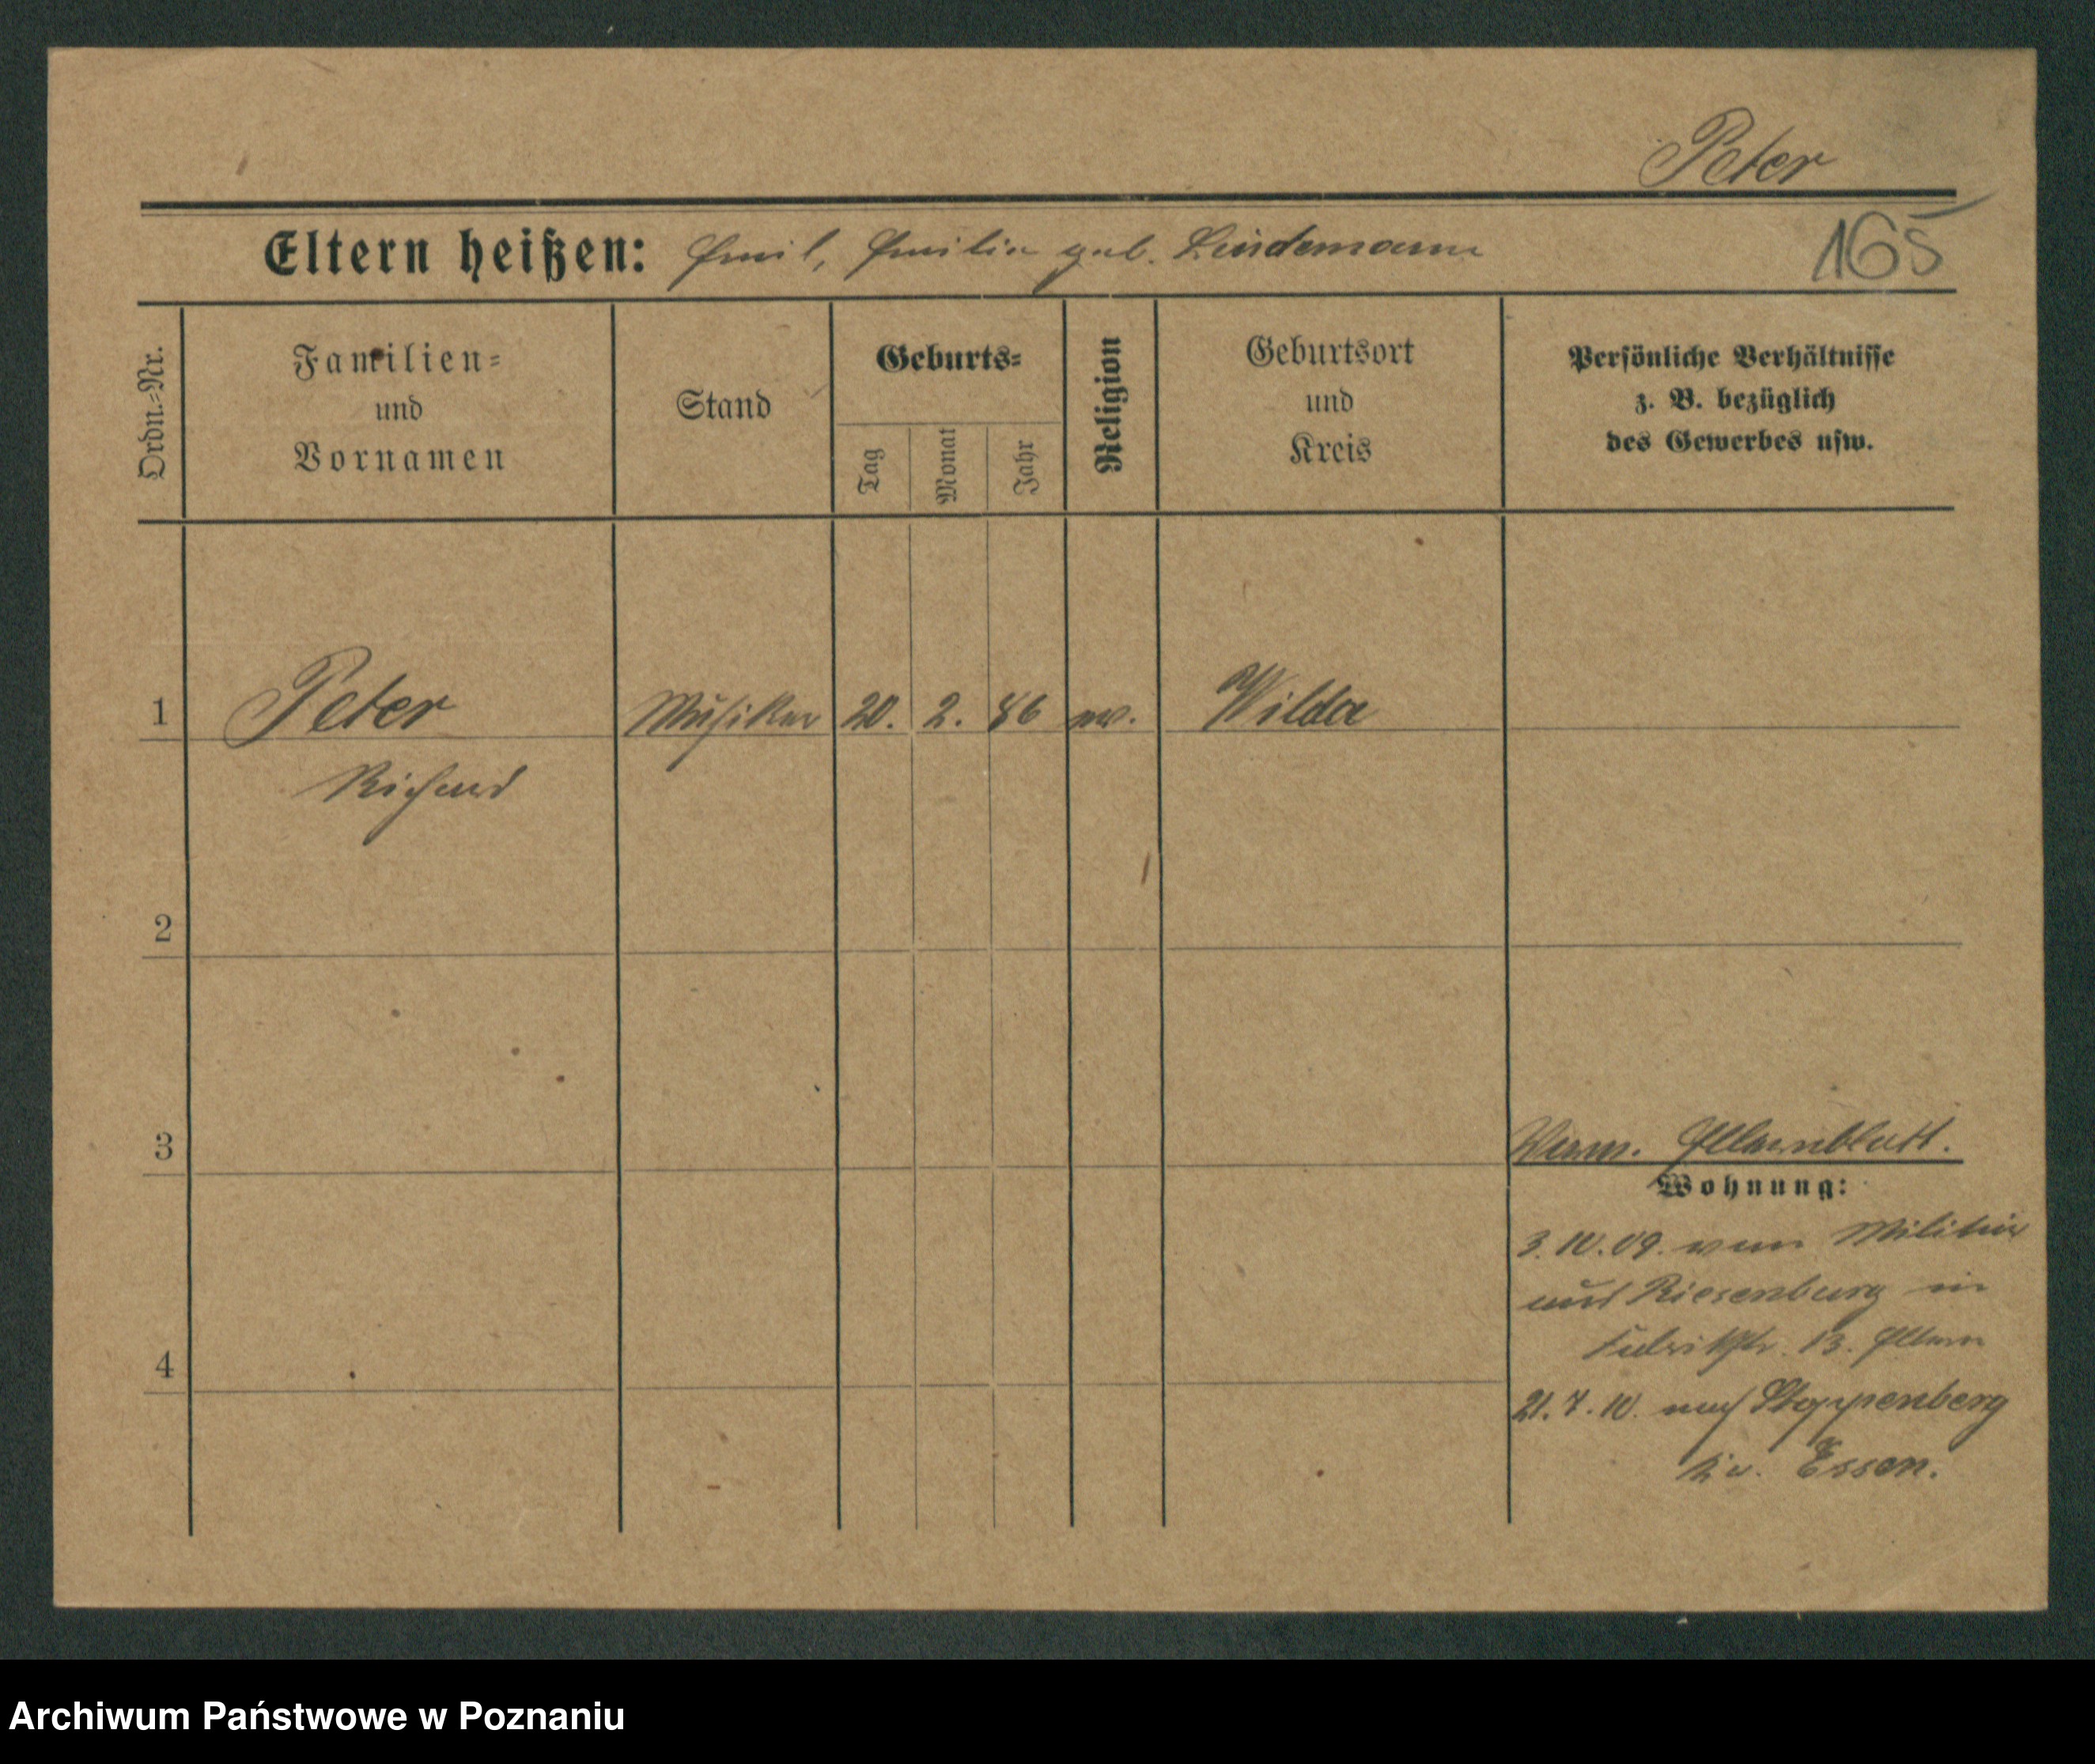 Peter
Eltern heißen: Emil, Emilie geb. Lindemann
165
Ordn.=Nr.
Familien=
und
Vornamen
Stand
Geburts=
Tag
Monat
Jahr
Religion
Geburtsort
und
Kreis
Persönliche Verhältnisse
z. B. bezüglich
des Gewerbes usw.
1 Peter Musiker 20. 2. 86 ev. Wilda
Richard
2
3
Verm. Elternblatt.
Wohnung:
3.10.09. vom Militär
aus Riesenburg in
Fabrikstr. 13. Eltern
4
21.7.10. nach Stoppenberg
Kr. Essen.
Archiwum Państwowe w Poznaniu